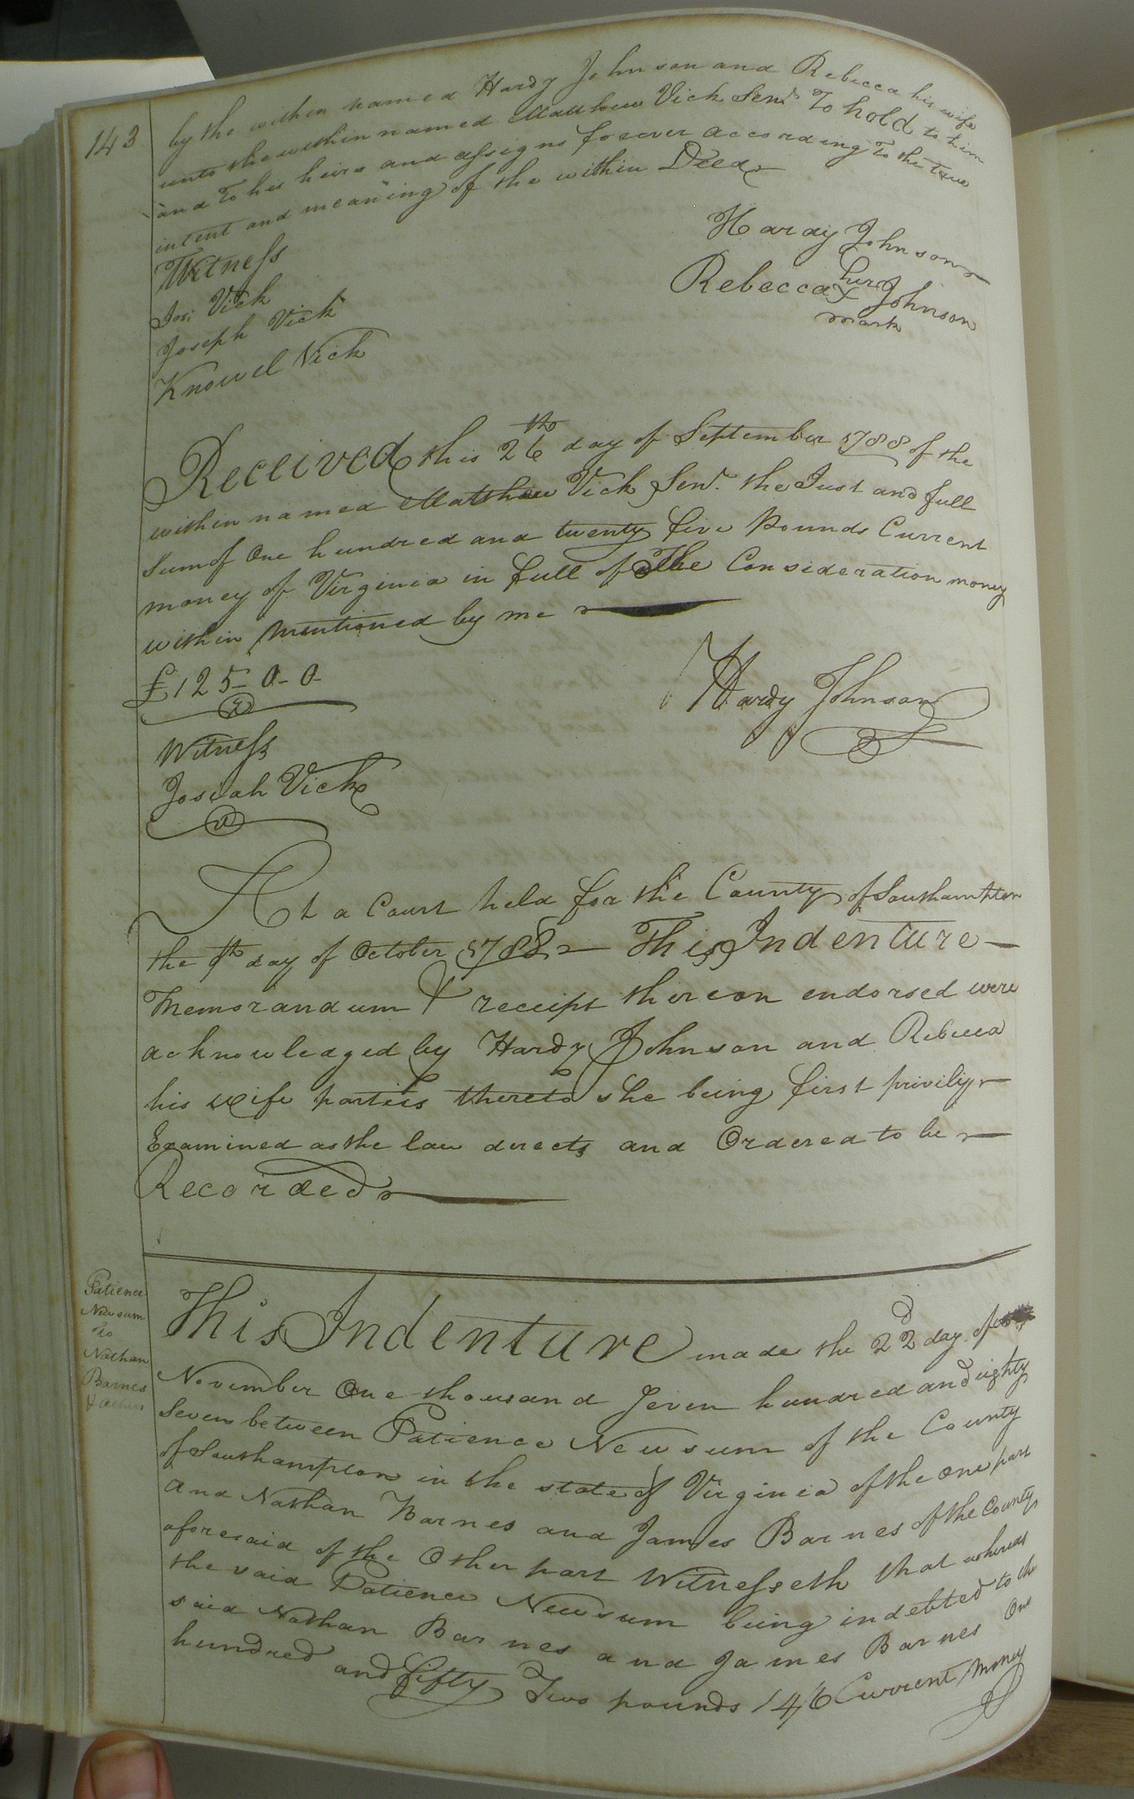 143
by the within named Hardy Johnson and Rebecca his wife
unto the within named Matthew Vick Senr. To hold to him
and To his heirs and assigns forever according To the true
intent and meaning of the within Deed
Hardy Johnson
Rebecca her X Johnson
mark
Witness
Jos: Vick
Joseph Vick
Knowel Vick
Received this 26th day of September 1788 of the
within named Matthew Vick Senr. the Just and full
Sum of One hundred and twenty five Pounds Current
money of Virginia in full of The Consideration money
within mentioned by me
£125-0-0
Hardy Johnson
Witness
Josiah Vick
At a Court held for the County of Southampton
the 9th day of October 1788 This Indenture
Memorandum & receipt thereon endorsed were
acknowledged by Hardy Johnson and Rebecca
his wife parties thereto she being first privily
Examined as the law directs and Ordered to be
Recorded
Patience
Newsum
To
Nathan
Barnes
& others
This Indenture made the 22d day of
November One thousand Seven hundred and eighty
Seven between Patience Newsum of the County
of Southampton in the state of Virginia of the one part
and Nathan Barnes and James Barnes of the County
aforesaid of the Other part Witnesseth that whereas
the said Patience Newsum being indebted to the
said Nathan Barnes and James Barnes One
hundred and fifty Two pounds 14/6 Current Money